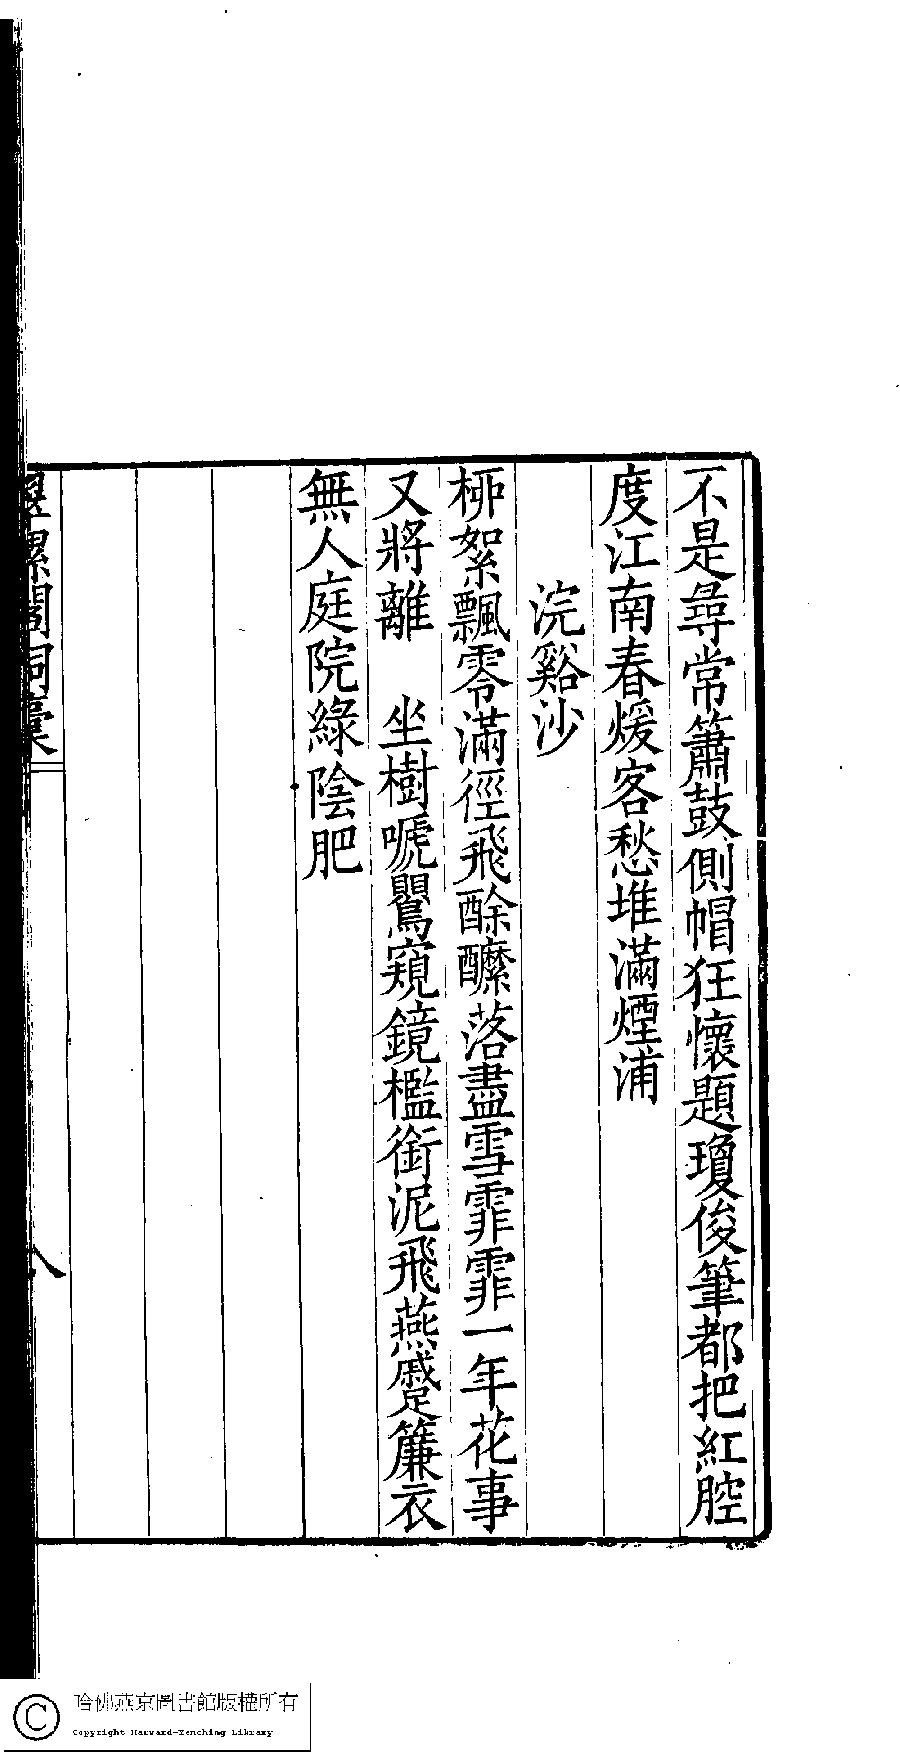 不是尋常簫鼓側帽狂懷題瓊俊筆都把紅腔
度江南春煖客愁堆滿煙浦
浣谿沙
桺絮飄零滿徑飛酴醾落盡雪霏霏一年花事
又將離　坐樹嗁鸎窺鏡檻銜泥飛燕蹙簾衣
無人庭院綠陰肥
翠螺閣詞稾
八
哈佛燕京圖書館版權所有
Copyright Harvard-Yenching Library